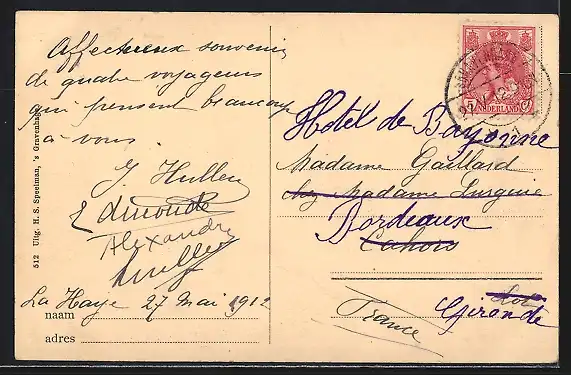 Affectueux souvenir
de quatre voyageurs
qui pensent beaucoup
à vous.
Edmonde
Alexandre
La Haye 27 Mai 1912
naam
adres
512 Uitg. H. S. Speelman, 's Gravenhage
5 NEDERLAND Ct
Hotel de Bayonne
Madame Gaillard
chez Madame
Bordeaux
Cahors
Lot
Gironde
France